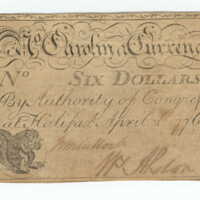 No Carolina Currency
No SIX DOLLARS
By Authority of Congress
at Halifax April 2d 1776